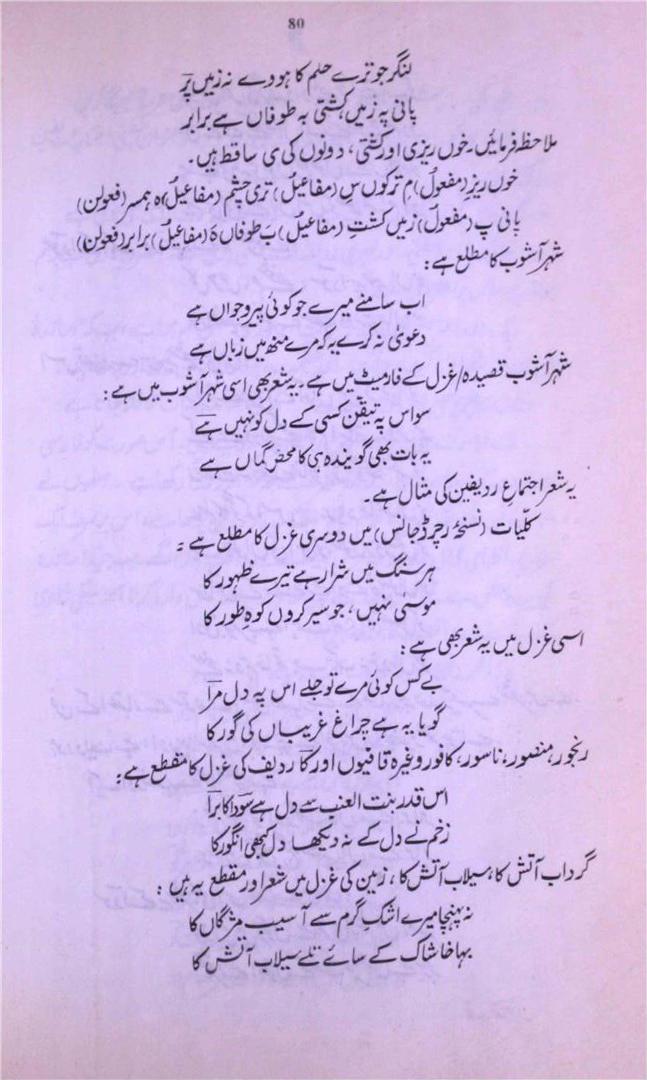 80
لنگر جو ترے حلم کا ہووے نہ زمیں پر
پانی پہ زمیں، کشتی بہ طوفاں ہے برابر
ملاحظہ فرمائیں۔ خوں ریزی اور کشتی، دونوں کی ی ساقط ہیں۔
خوں ریز (مفعولُ) م ترکوں س (مفاعیلُ) تری چشم (مفاعیلُ) ہ ہمسر (فعولن)
پانی پ (مفعولُ) زمیں کشتِ (مفاعیلُ) بَ طوفاں ہَ (مفاعیلُ) برابر (فعولن)
شہر آشوب کا مطلع ہے:
اب سامنے میرے جو کوئی پیر و جواں ہے
دعویٰ نہ کرے یہ کہ مرے منھ میں زباں ہے
شہر آشوب قصیدہ/غزل کے فارمیٹ میں ہے۔ یہ شعر بھی اسی شہر آشوب میں ہے:
سو اس پہ تیقّن کسی کے دل کو نہیں ہے
یہ بات بھی گویندہ ہی کا محض گماں ہے
یہ شعر اجتماعِ ردیفین کی مثال ہے۔
کلیّات (نسخۂ رچرڈ جانسن) میں دوسری غزل کا مطلع ہے۔
ہر سنگ میں شرار ہے تیرے ظہور کا
موسیٰ نہیں، جو سیر کروں کوہِ طور کا
اسی غزل میں یہ شعر بھی ہے:
بے کس کوئی مرے تو جلے اس پہ دل مرا
گویا یہ ہے چراغ غریباں کی گور کا
رنجور، منصور، ناسور، کافور وغیرہ قافیوں اور کا ردیف کی غزل کا مقطع ہے:
اس قدر بنت العنب سے دل ہے سودا کا برا
زخم نے دل کے نہ دیکھا دل کبھی انگور کا
گرداب آتش کا، سیلاب آتش کا، زمین کی غزل میں شعر اور مقطع یہ ہیں:
نہ پہنچا میرے اشکِ گرم سے آسیب مژگاں کا
بہا خاشاک کے سائے تلے سیلاب آتش کا